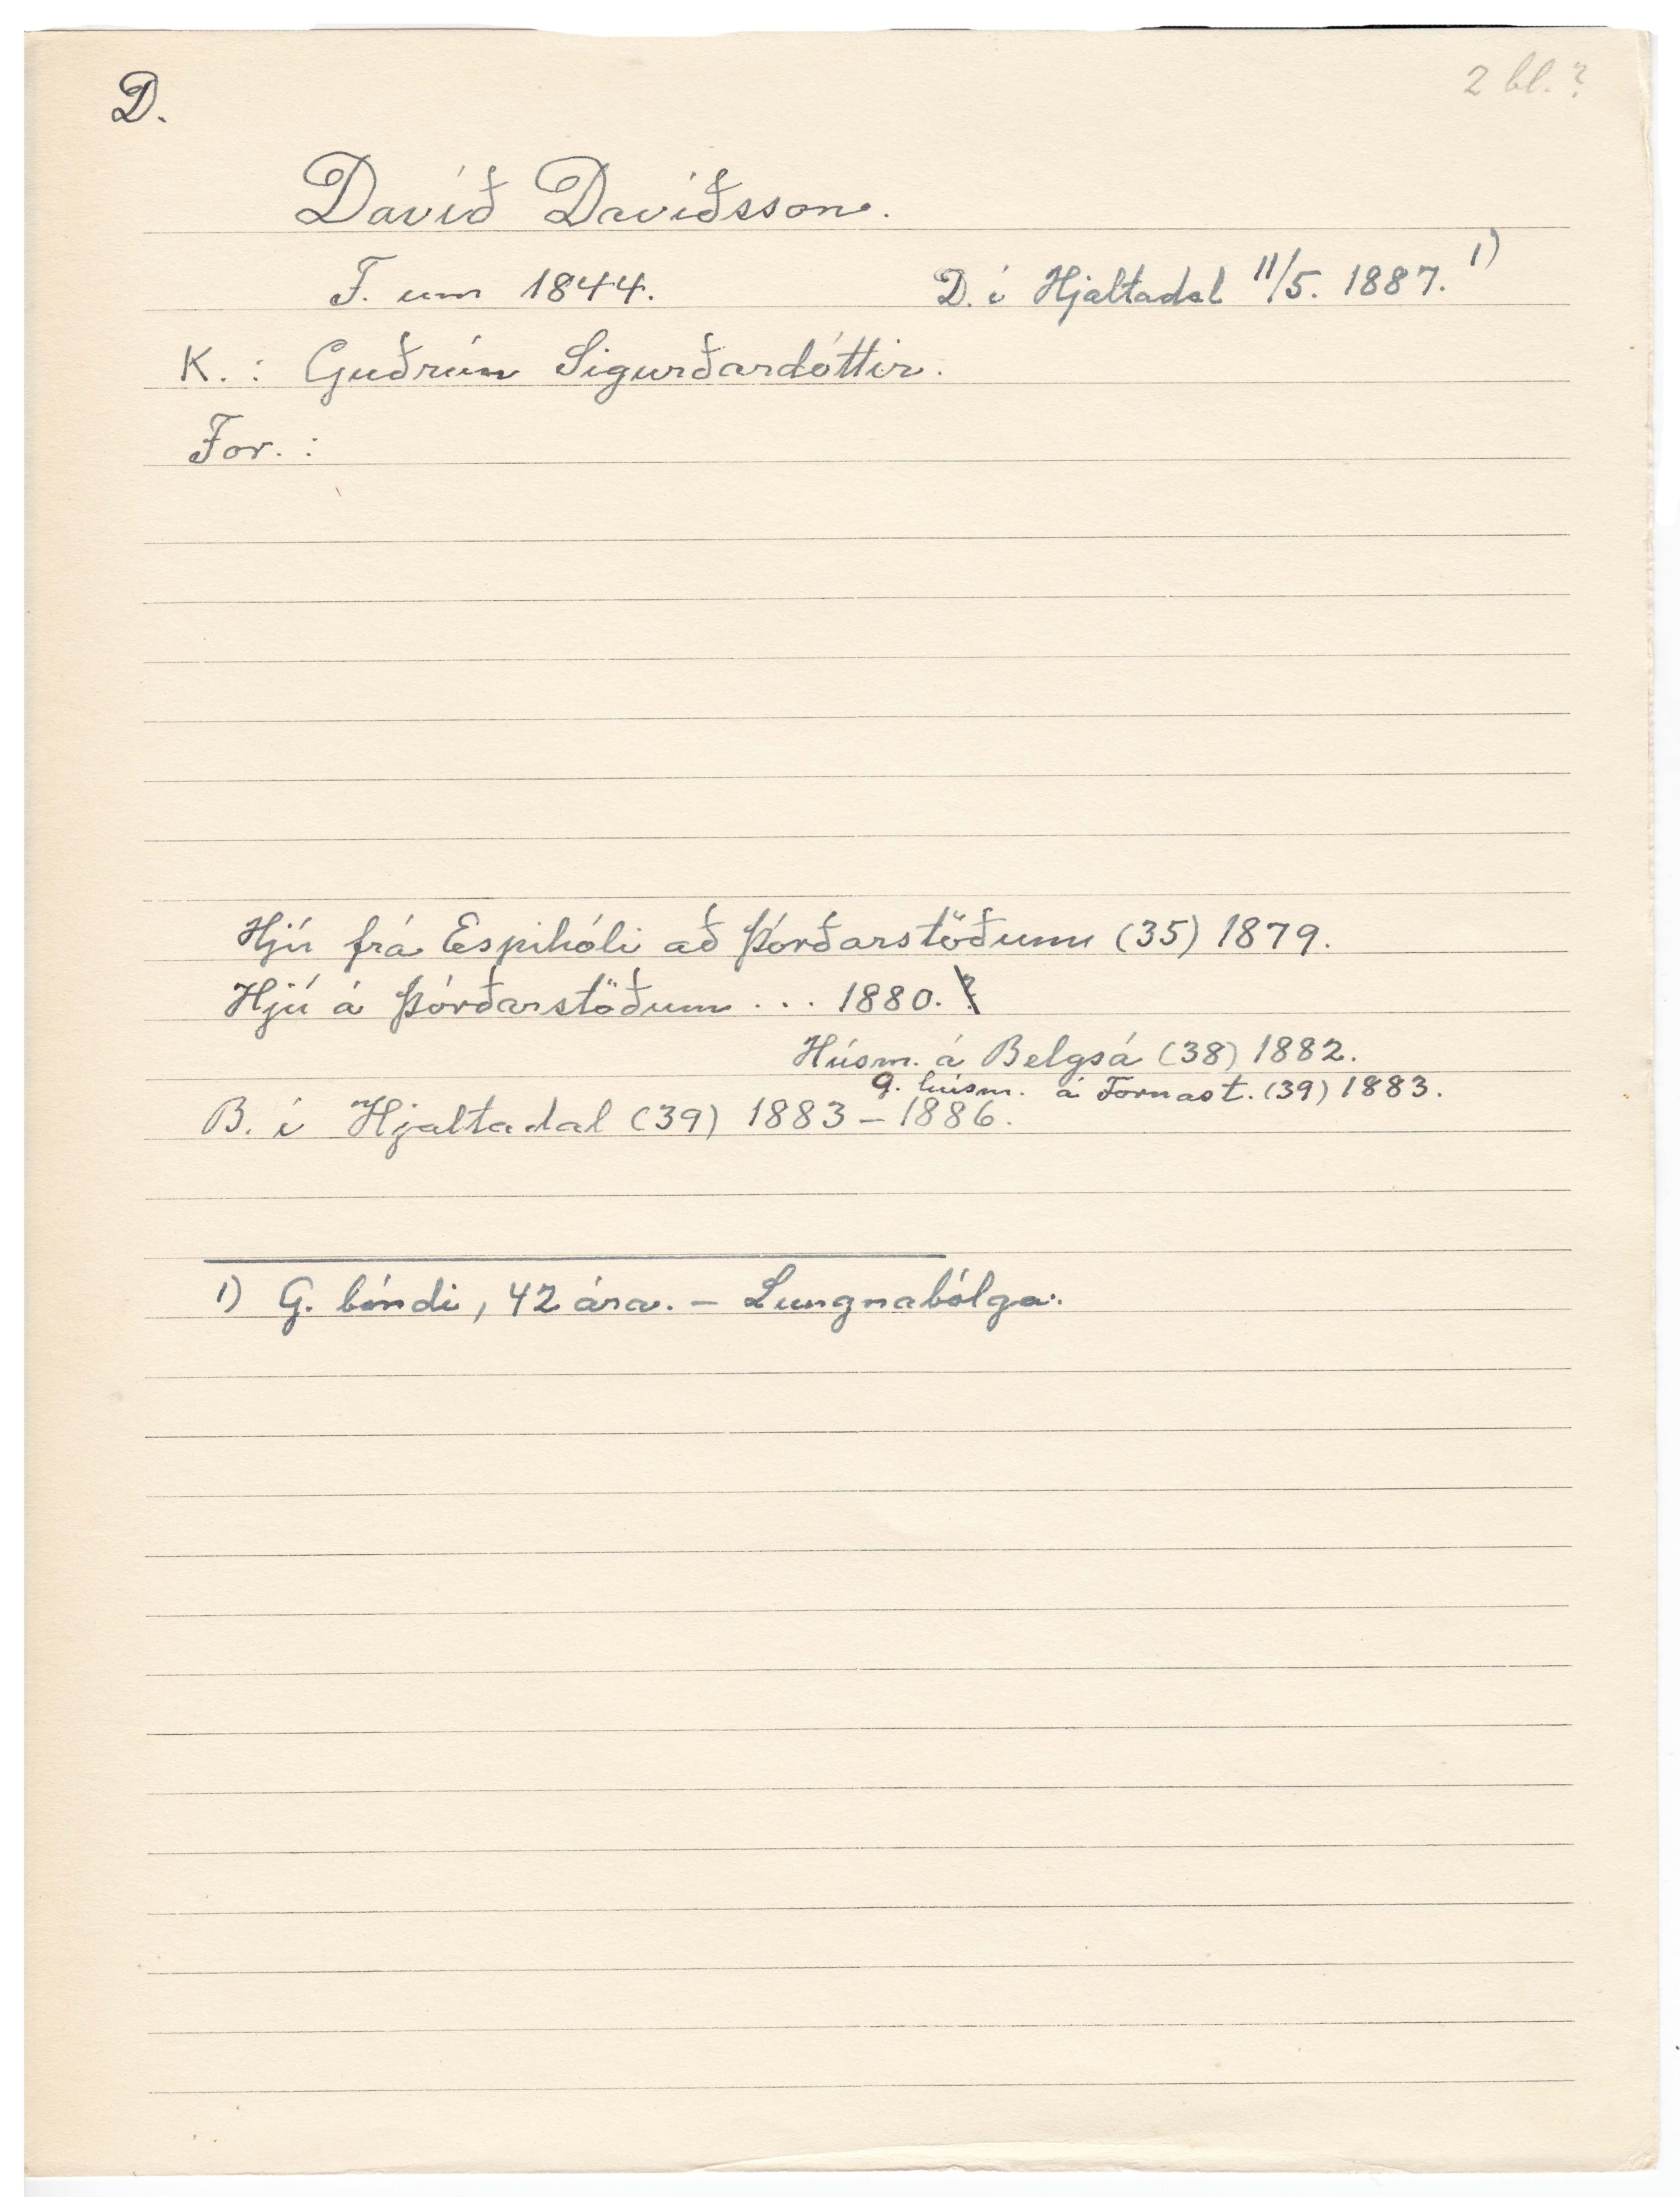 D.
2 bl. ?
Davíð Davíðsson.
F. um 1844.
D. í Hjaltadal 11/5. 1887. 1)
K. : Guðrún Sigurðardóttir.
For. :
Hjú frá Espihóli að Þórðarstöðum (35) 1879.
Hjú á Þórðarstöðum ... 1880.
Húsm. á Belgsá (38) 1882.
g. húsm. á Fornast. (39) 1883.
B. í Hjaltadal (39) 1883 – 1886.
1) G. bóndi, 42 ára. – Lungnabólga.